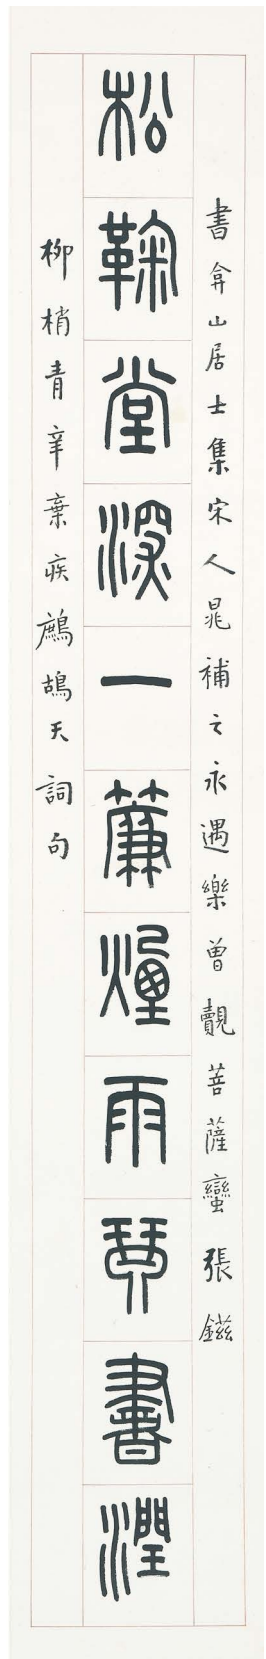 書弇山居士集宋人晁補之永遇樂曾覿菩薩蠻張鎡
松鞠堂深一簾煙雨琴書潤
柳梢青辛棄疾鷓鴣天詞句